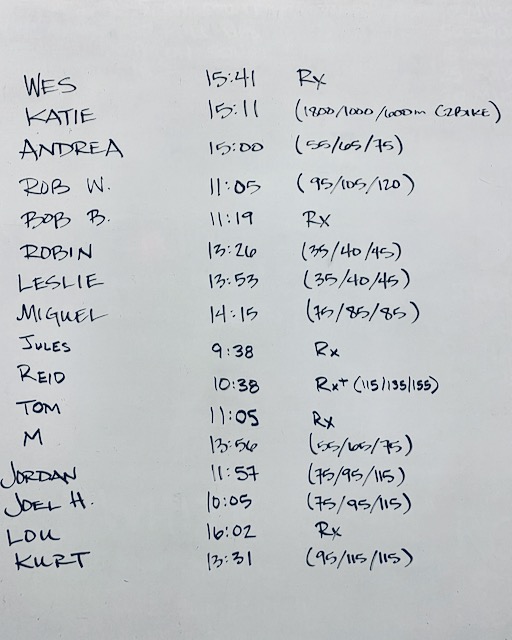 WES 15:41 Rx
KATIE 15:11 (1200/1000/600m C2BIKE)
ANDREA 15:00 (55/65/75)
ROB W. 11:05 (95/105/120)
BOB B. 11:19 Rx
ROBIN 13:26 (35/40/45)
LESLIE 13:53 (35/40/45)
MIGUEL 14:15 (75/85/85)
JULES 9:38 Rx
REID 10:38 Rx+ (115/135/155)
TOM 11:05 Rx
M 13:56 (55/65/75)
JORDAN 11:57 (75/95/115)
JOEL H. 10:05 (75/95/115)
LOU 16:02 Rx
KURT 13:31 (95/115/115)